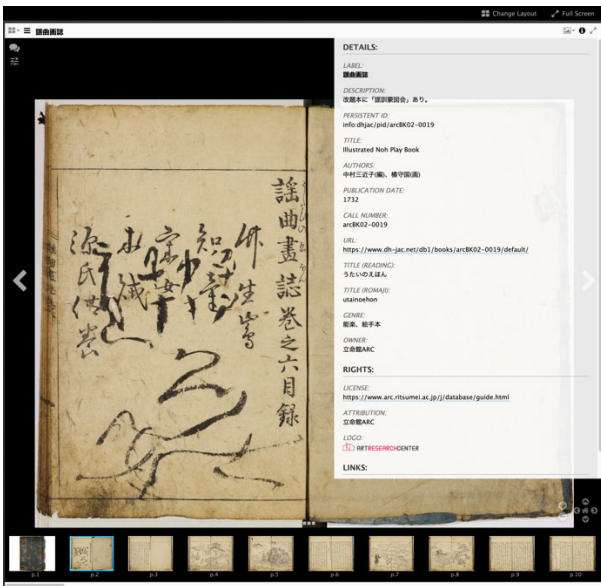 Change Layout
Full Screen
謡曲画誌
DETAILS:
LABEL:
謡曲画誌
DESCRIPTION:
改題本に「謡訓蒙図会」あり。
PERSISTENT ID:
info:dhjac/pid/arcBK02-0019
TITLE:
Illustrated Noh Play Book
AUTHORS:
中村三近子(編)、橘守国(画)
PUBLICATION DATE:
1732
CALL NUMBER:
arcBK02-0019
URL:
https://www.dh-jac.net/db1/books/arcBK02-0019/default/
TITLE (READING):
うたいのえほん
TITLE (ROMAJI):
utainoehon
GENRE:
能楽、絵手本
OWNER:
立命館ARC
RIGHTS:
LICENSE:
https://www.arc.ritsumei.ac.jp/j/database/guide.html
ATTRIBUTION:
立命館ARC
LOGO:
ARTRESEARCHCENTER
LINKS:
謡曲畫誌巻之六目録
竹生嶌
源氏供養
p.1
p.2
p.3
p.4
p.5
p.6
p.7
p.8
p.9
p.10